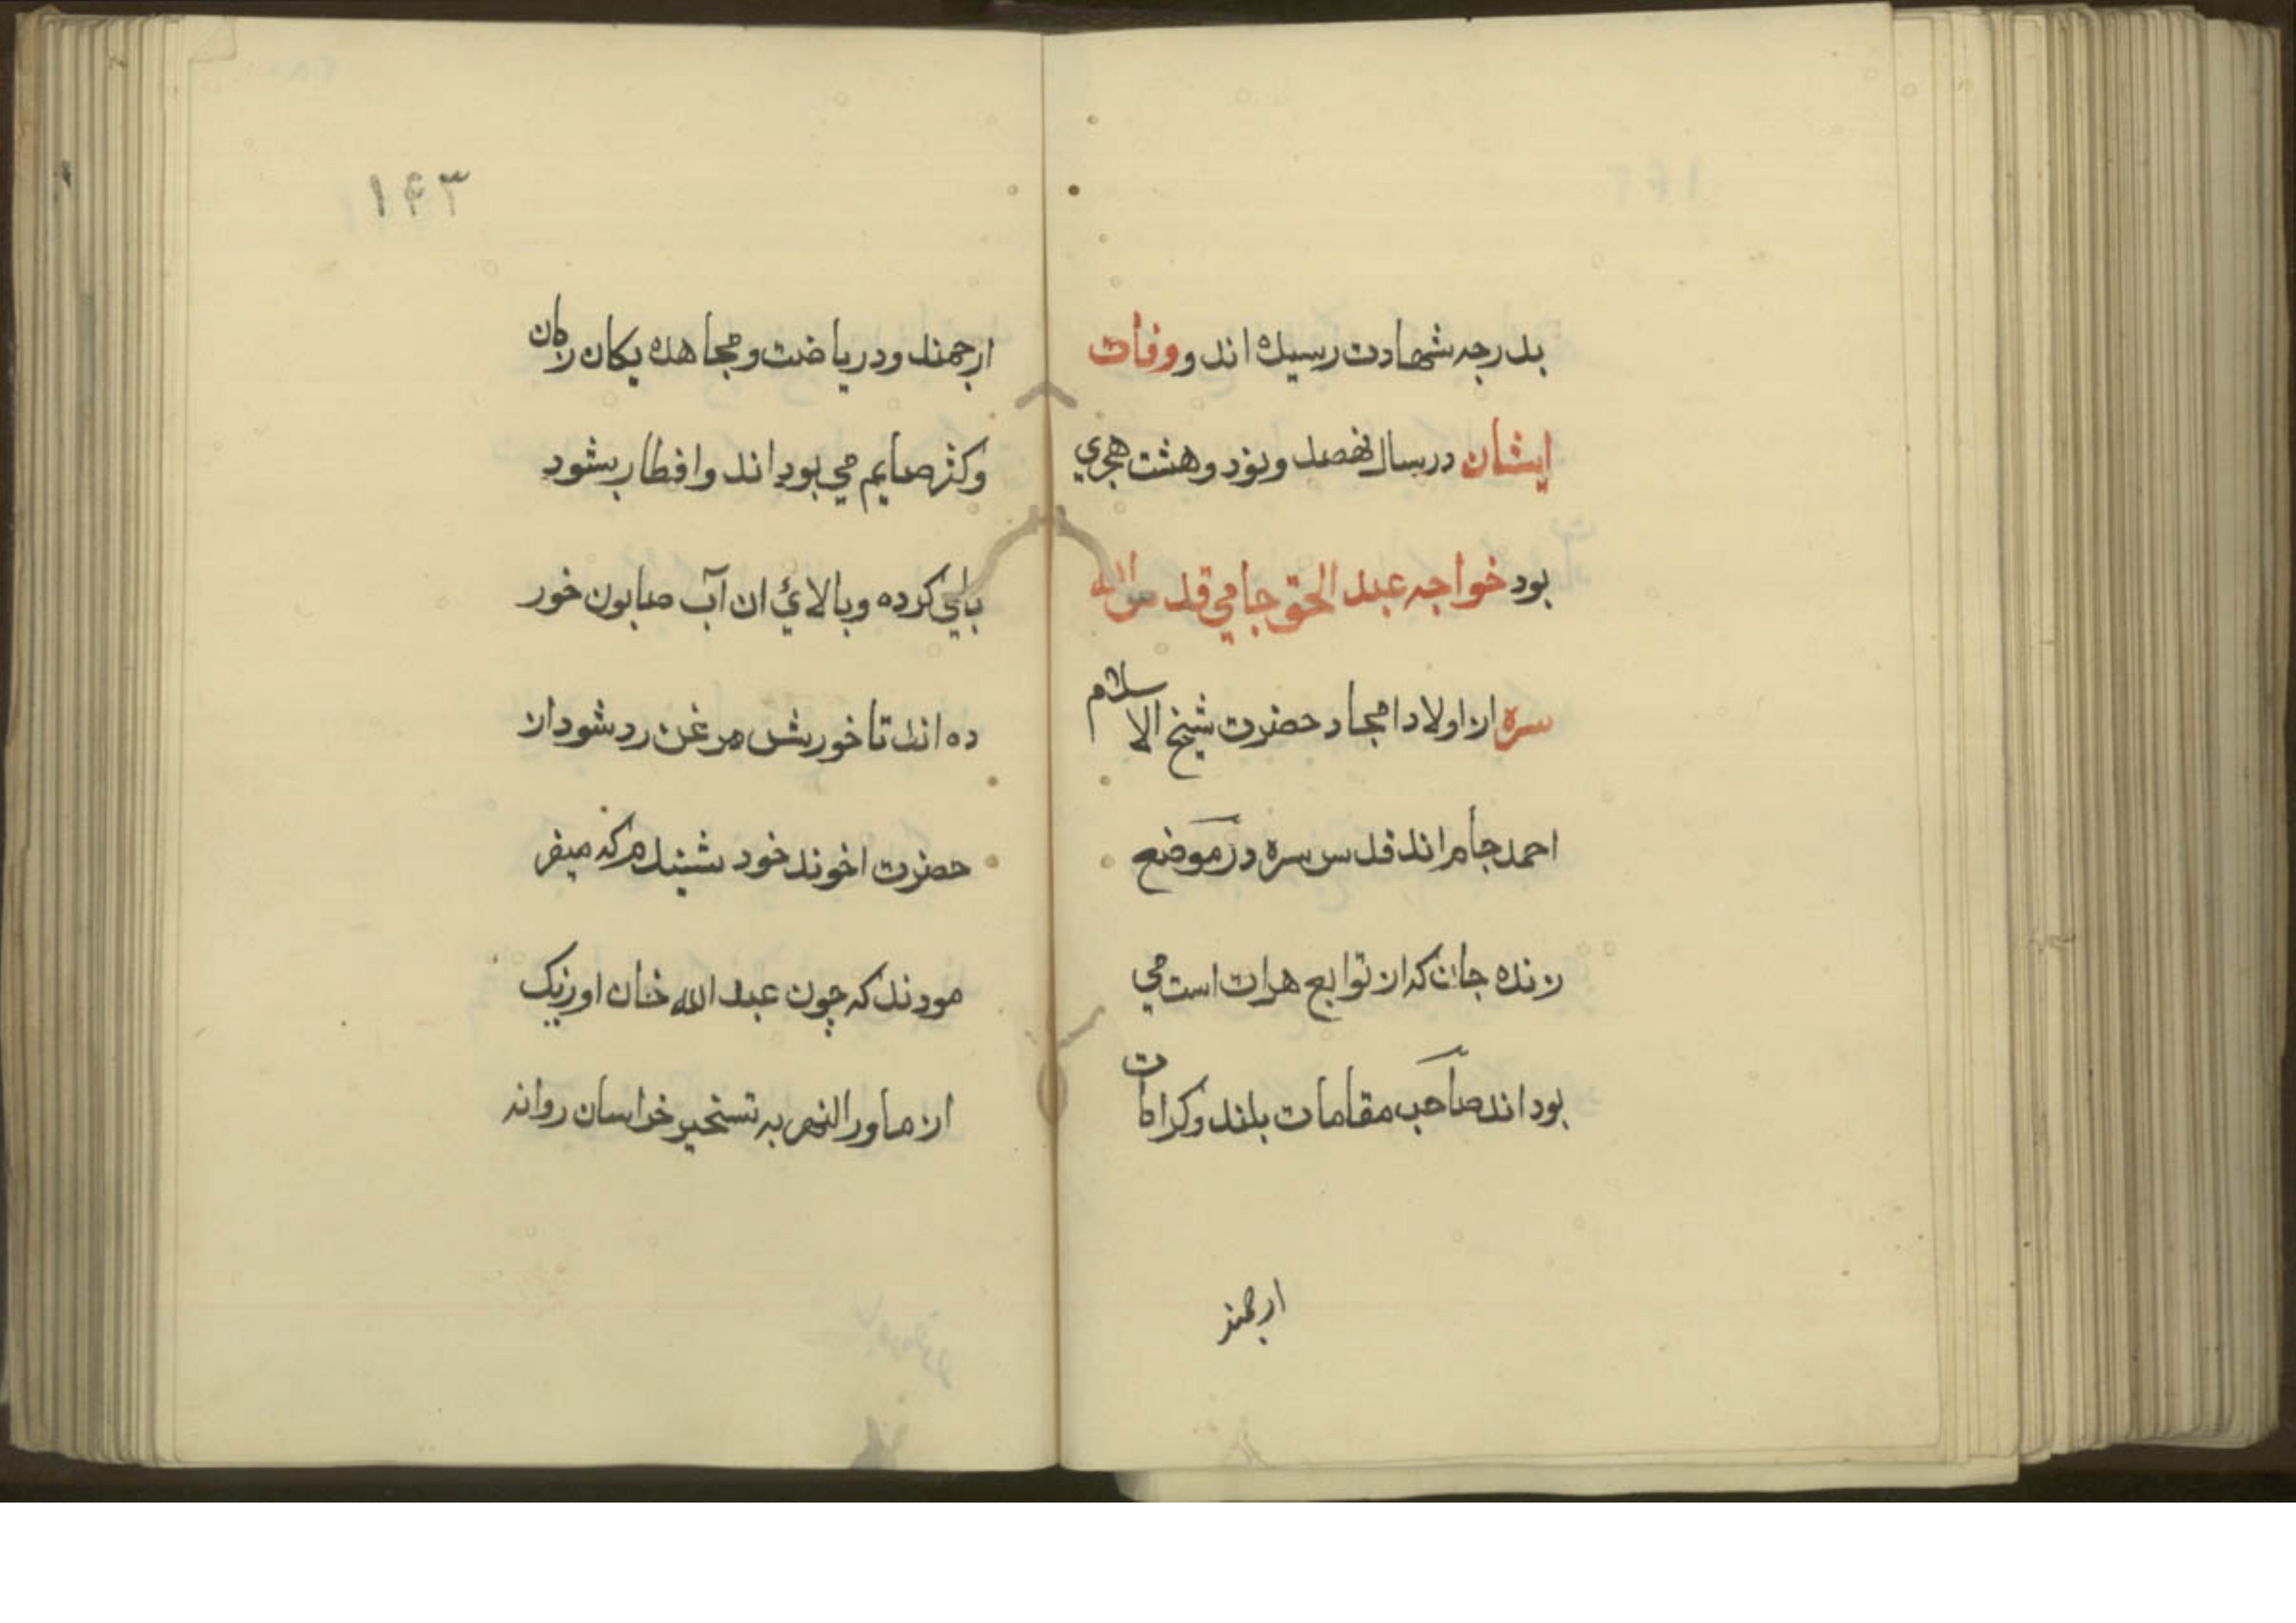 بدرجه شهادت رسیده اند و وفات
ایشان در سال نهصد و نود و هشت هجري
بود خواجه عبد الحق جامي قدس الله
سره از اولاد امجاد حضرت شیخ الاسلام
احمد جام اند قدس سره در موضع
زنده جان که از توابع هرات است مي
بود اند صاحب مقامات بلند و کرامات
ارجمند
۱۴۳
ارجمند و در ریاضت و مجاهده یکان زمان
و کثر صایم مي بود اند و افطار بشود
بائي کرده و بالائي ان آب صابون خور
ده اند تا خورش مرغن رد شود از
حضرت اخوند خود شنیدم که میفر
مودند که چون عبد الله خان اوزبک
از ماور النهر به تسخیر خراسان روانه